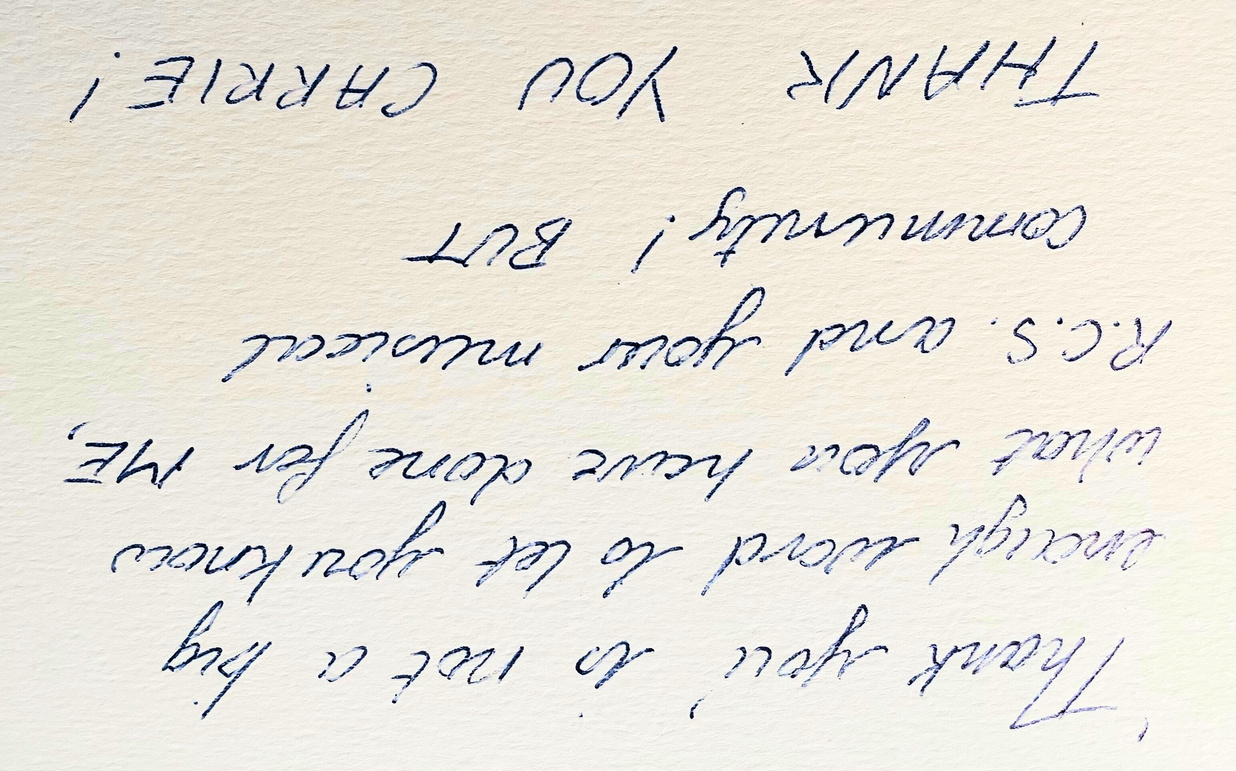 'Thank you' is not a big
enough word to let you know
what you have done for ME,
R.C.S. and your musical
community! BUT
THANK YOU CARRIE!